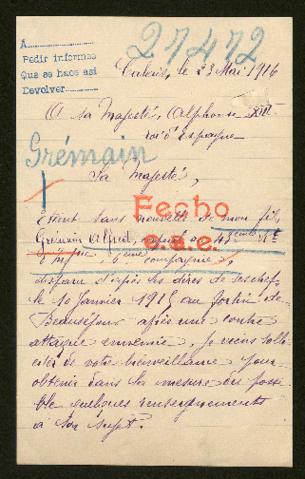 A
Pedir informes
Que se haos asi
Devolver
27472
Calais, le 23 Mai 1916
A sa Majesté, Alphonse XIII
roi d'Espagne
Grémain
Sa Majesté,
Fecho
s.a.e.
Etant sans nouvelle de mon fils
Grémain Alfred, au 43ème Rgt
6ème compagnie,
disparu d'après les dires de ses chefs
le 10 Janvier 1915 au fortin de
Beauséjour après une contre
attaque ennemie, je viens solli-
citer de votre bienveillance pour
obtenir dans la mesure du possi
ble quelques renseignements
à son sujet.